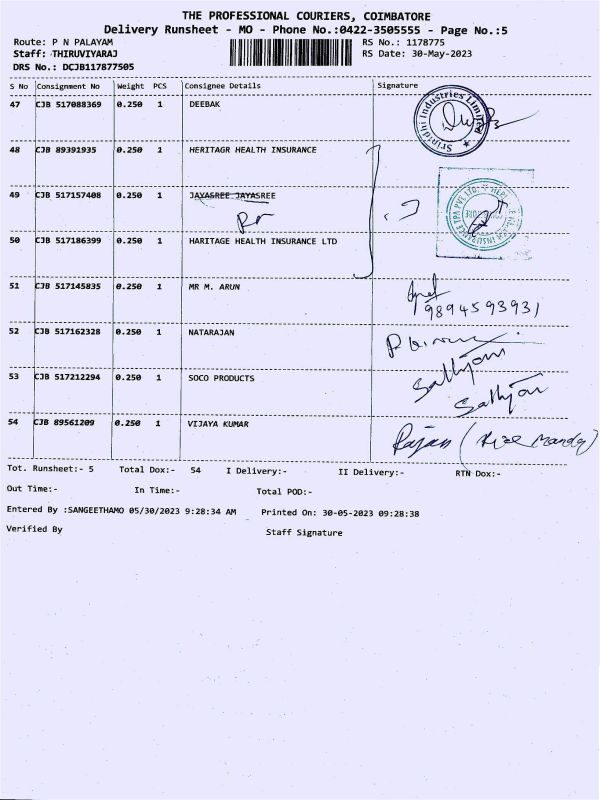 THE PROFESSIONAL COURIERS, COIMBATORE
Delivery Runsheet - MO - Phone No.:0422-3505555 - Page No.:5
Route: P N PALAYAM RS No.: 1178775
Staff: THIRUVIYARAJ RS Date: 30-May-2023
DRS No.: DCJB117877505
S No Consignment No Weight PCS Consignee Details Signature
47 CJB 517088369 0.250 1 DEEBAK
Srinidhi Industries Limited
48 CJB 89391935 0.250 1 HERITAGR HEALTH INSURANCE
49 CJB 517157408 0.250 1 JAYASREE JAYASREE
50 CJB 517186399 0.250 1 HARITAGE HEALTH INSURANCE LTD
51 CJB 517145835 1 0.250 MR M. ARUN
9894593931
52 CJB 517162328 0.250 1 NATARAJAN
53 CJB 517212294 0.250 1 SOCO PRODUCTS
Sathyan
Sathyan
54 CJB 89561209 0.250 1 VIJAYA KUMAR
Rajan (Rice Mandy)
Tot. Runsheet:- 5 Total Dox:- 54 I Delivery:- II Delivery:- RTN Dox:-
Out Time:- In Time:- Total POD:-
Entered By :SANGEETHAMO 05/30/2023 9:28:34 AM Printed On: 30-05-2023 09:28:38
Verified By Staff Signature